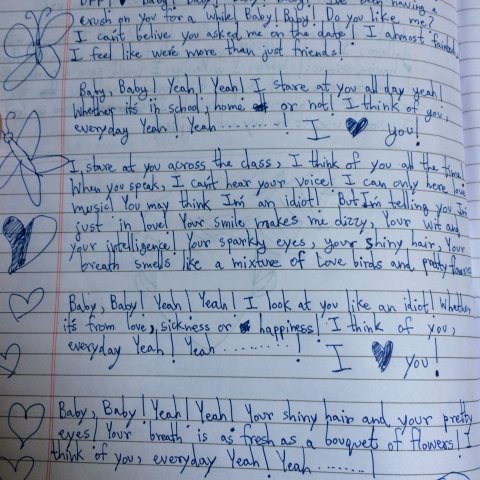 crush on you for a while! Baby! Baby! Do you like me?
I can't belive you asked me on the date! I almost fainted,
I feel like we're more than just friends!
Baby, Baby! Yeah! Yeah! I stare at you all day yeah!
Whether its in school, home or not! I think of you,
everyday Yeah! Yeah .........! I ♥ you!
I stare at you across the class, I think of you all the time!
When you speak, I can't hear your voice! I can only here love
music! You may think I'm an idiot! But I'm telling you I'm
just in love! Your smile makes me dizzy, Your wit and
Your intelligence! Your sparky eyes, your shiny hair, Your
breath smells like a mixture of Love birds and pretty flowers
Baby, Baby! Yeah! Yeah! I look at you like an idiot! Whether
it's from love, sickness or happiness! I think of you,
everyday Yeah! Yeah .........! I ♥ you!
Baby, Baby! Yeah! Yeah! Your shiny hair and your pretty
eyes! Your breath is as fresh as a bouquet of flowers! I
think of you, everyday Yeah! Yeah ......!